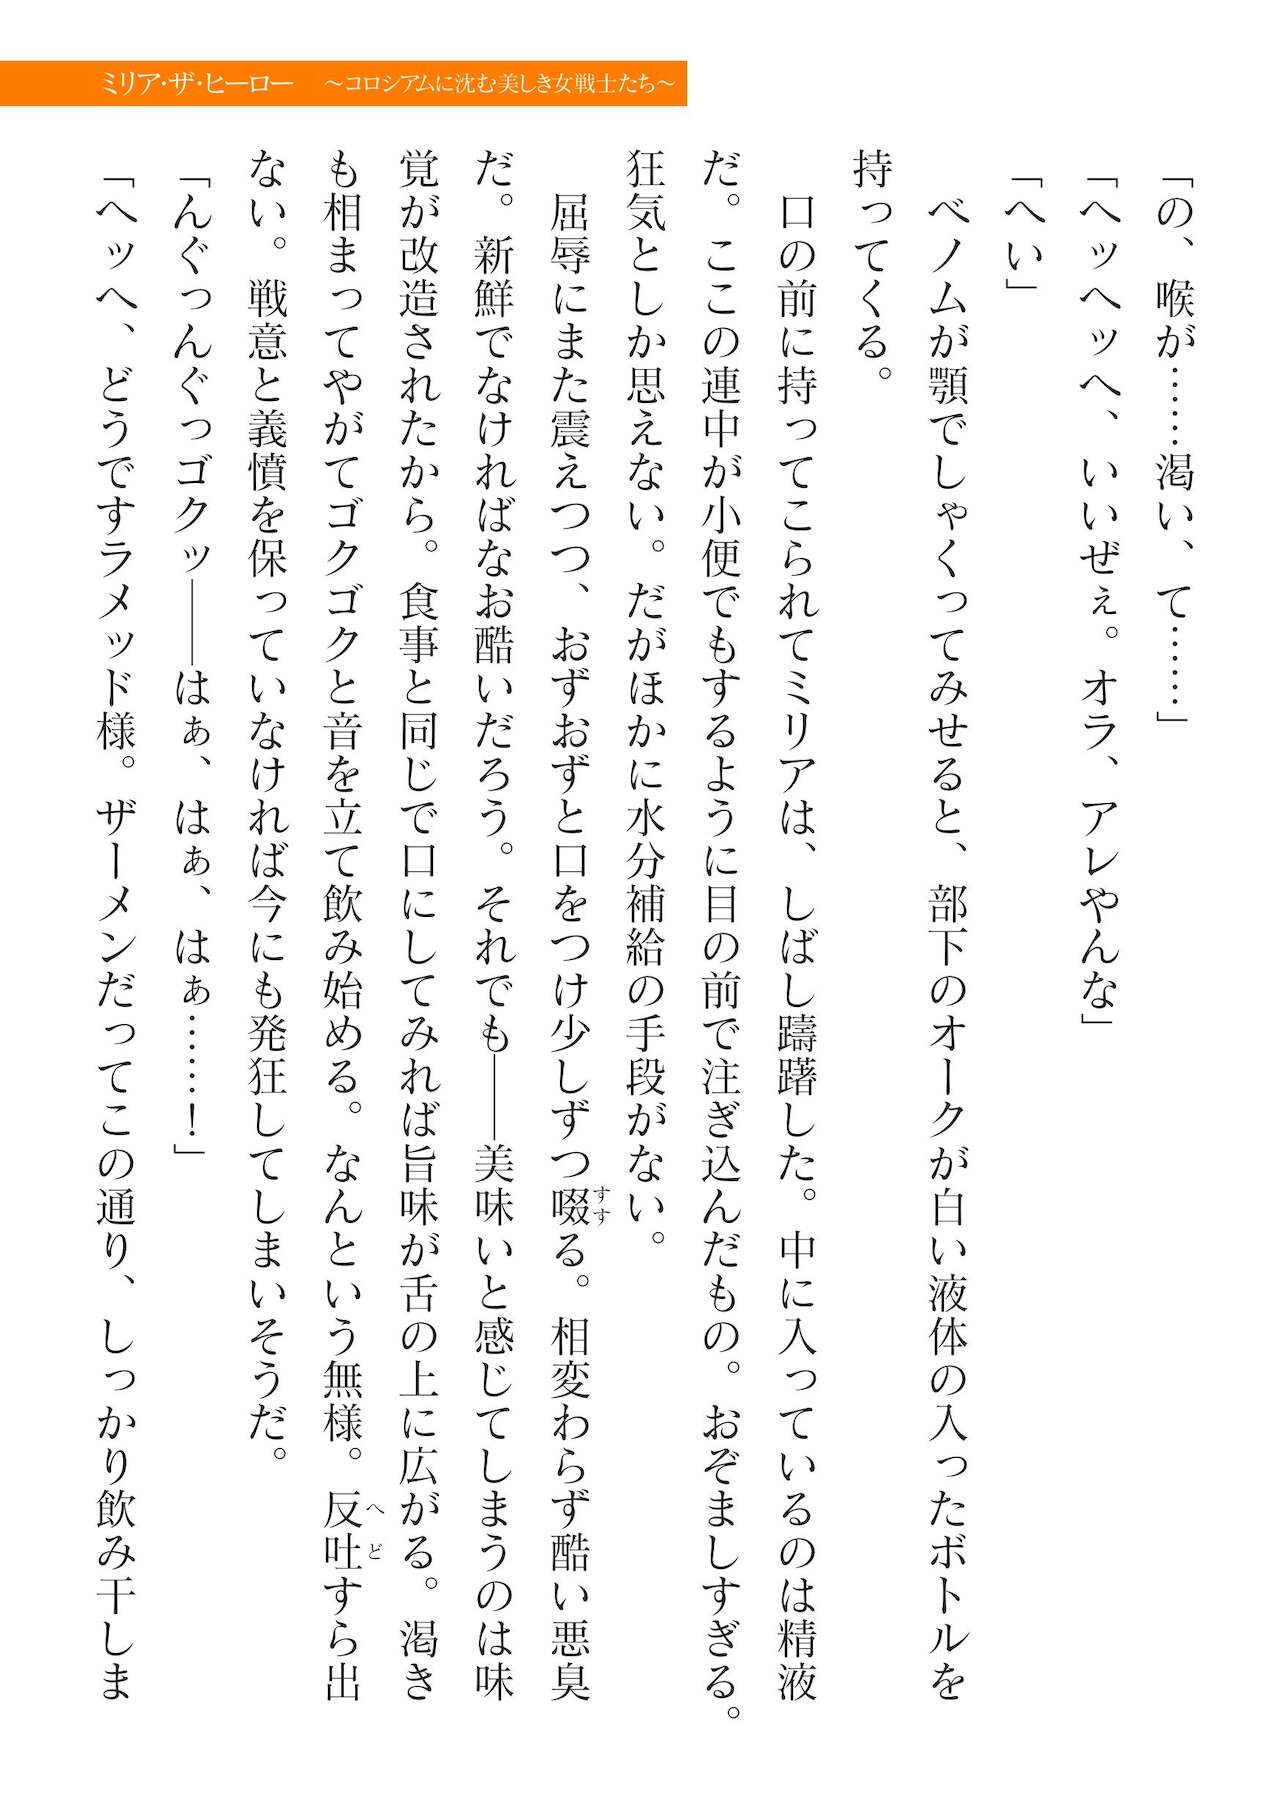 ミリア・ザ・ヒーロー　～コロシアムに沈む美しき女戦士たち～
「の、喉が……渇い、て……」
「ヘッヘッヘ、いいぜぇ。オラ、アレやんな」
「へい」
　ベノムが顎でしゃくってみせると、部下のオークが白い液体の入ったボトルを
持ってくる。
　口の前に持ってこられてミリアは、しばし躊躇した。中に入っているのは精液
だ。ここの連中が小便でもするように目の前で注ぎ込んだもの。おぞましすぎる。
狂気としか思えない。だがほかに水分補給の手段がない。
　屈辱にまた震えつつ、おずおずと口をつけ少しずつ啜る。相変わらず酷い悪臭
だ。新鮮でなければなお酷いだろう。それでも――美味いと感じてしまうのは味
覚が改造されたから。食事と同じで口にしてみれば旨味が舌の上に広がる。渇き
も相まってやがてゴクゴクと音を立て飲み始める。なんという無様。反吐すら出
ない。戦意と義憤を保っていなければ今にも発狂してしまいそうだ。
「んぐっんぐっゴクッ――はぁ、はぁ、はぁ……！」
「ヘッヘ、どうですラメッド様。ザーメンだってこの通り、しっかり飲み干しま